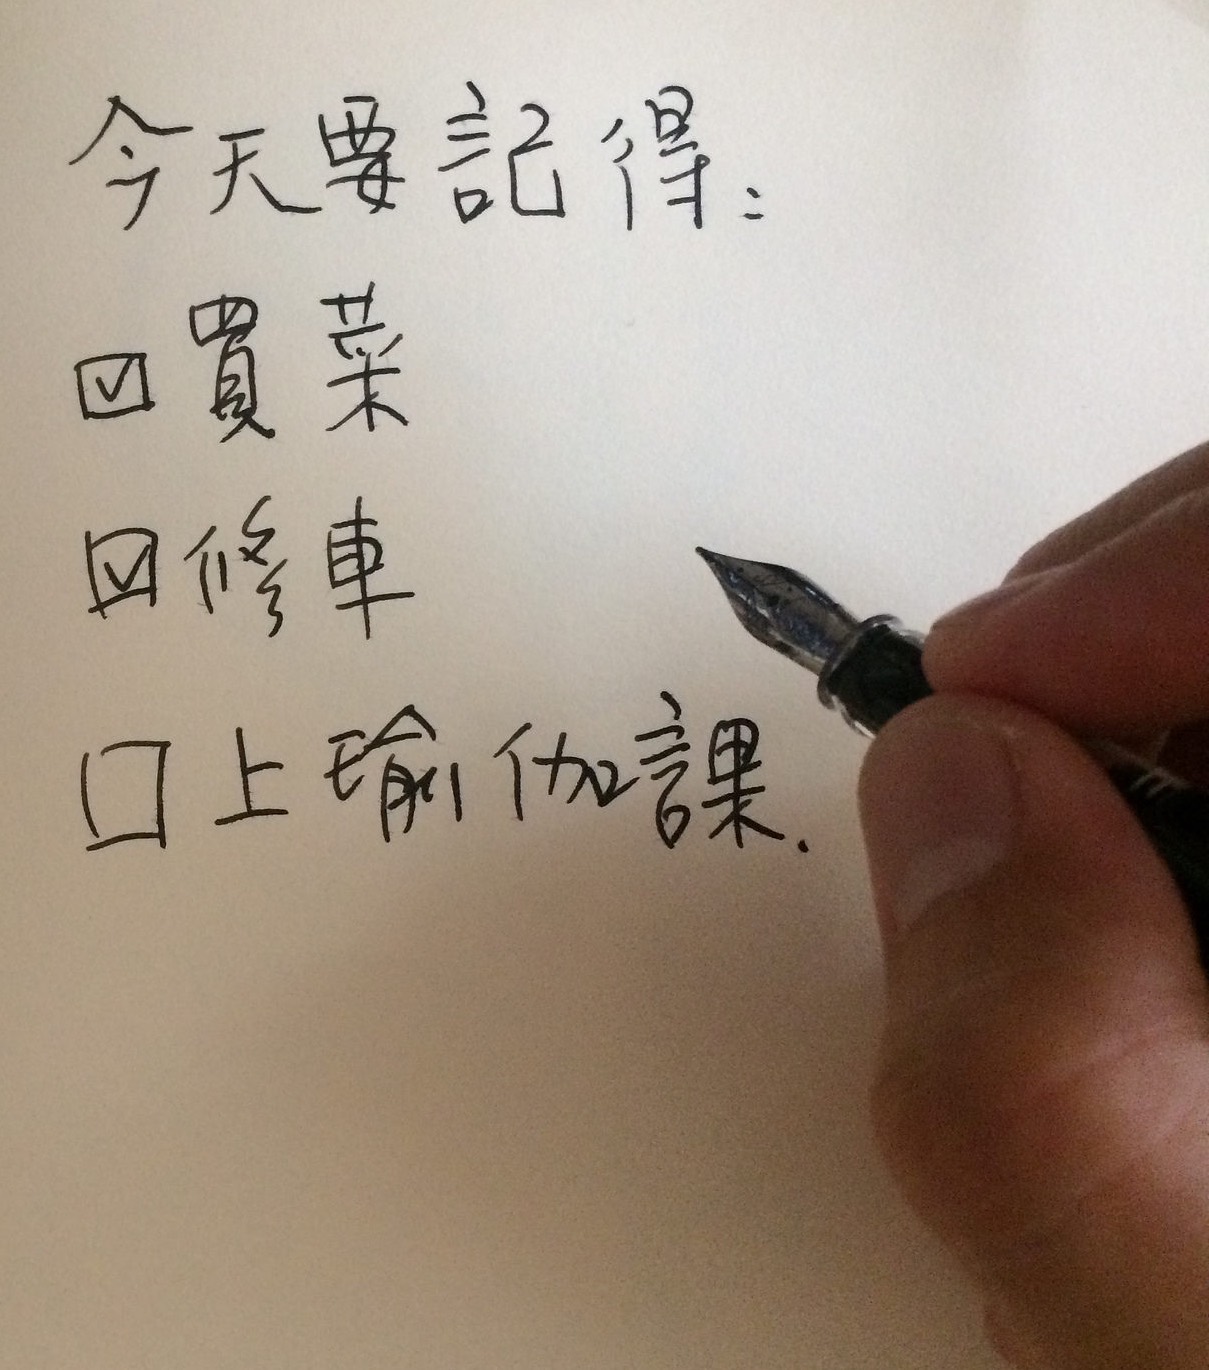 今天要記得：
☑買菜
☑修車
☐上瑜伽課.